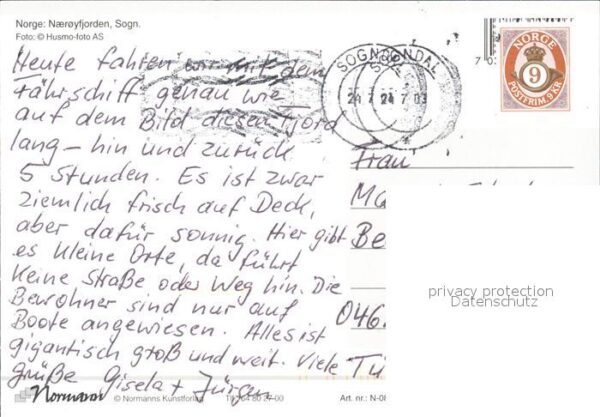 Norge: Nærøyfjorden, Sogn.
Foto: © Husmo-foto AS
Heute fahren wir mit dem
Fährschiff genau wie
auf dem Bild diesen Fjord
lang – hin und zurück
5 Stunden. Es ist zwar
ziemlich frisch auf Deck,
aber dafür sonnig. Hier gibt
es kleine Orte, da führt
keine Straße oder Weg hin. Die
Bewohner sind nur auf
Boote angewiesen. Alles ist
gigantisch groß und weit. Viele
grüße Gisela + Jürgen
Normann
© Normanns Kunstforlag
Art. nr.: N-0
SOGNDAL
24 7 03
NORGE
9
POSTFRIM. 9 KR
Frau
Ma
Be
046
Tü
privacy protection
Datenschutz